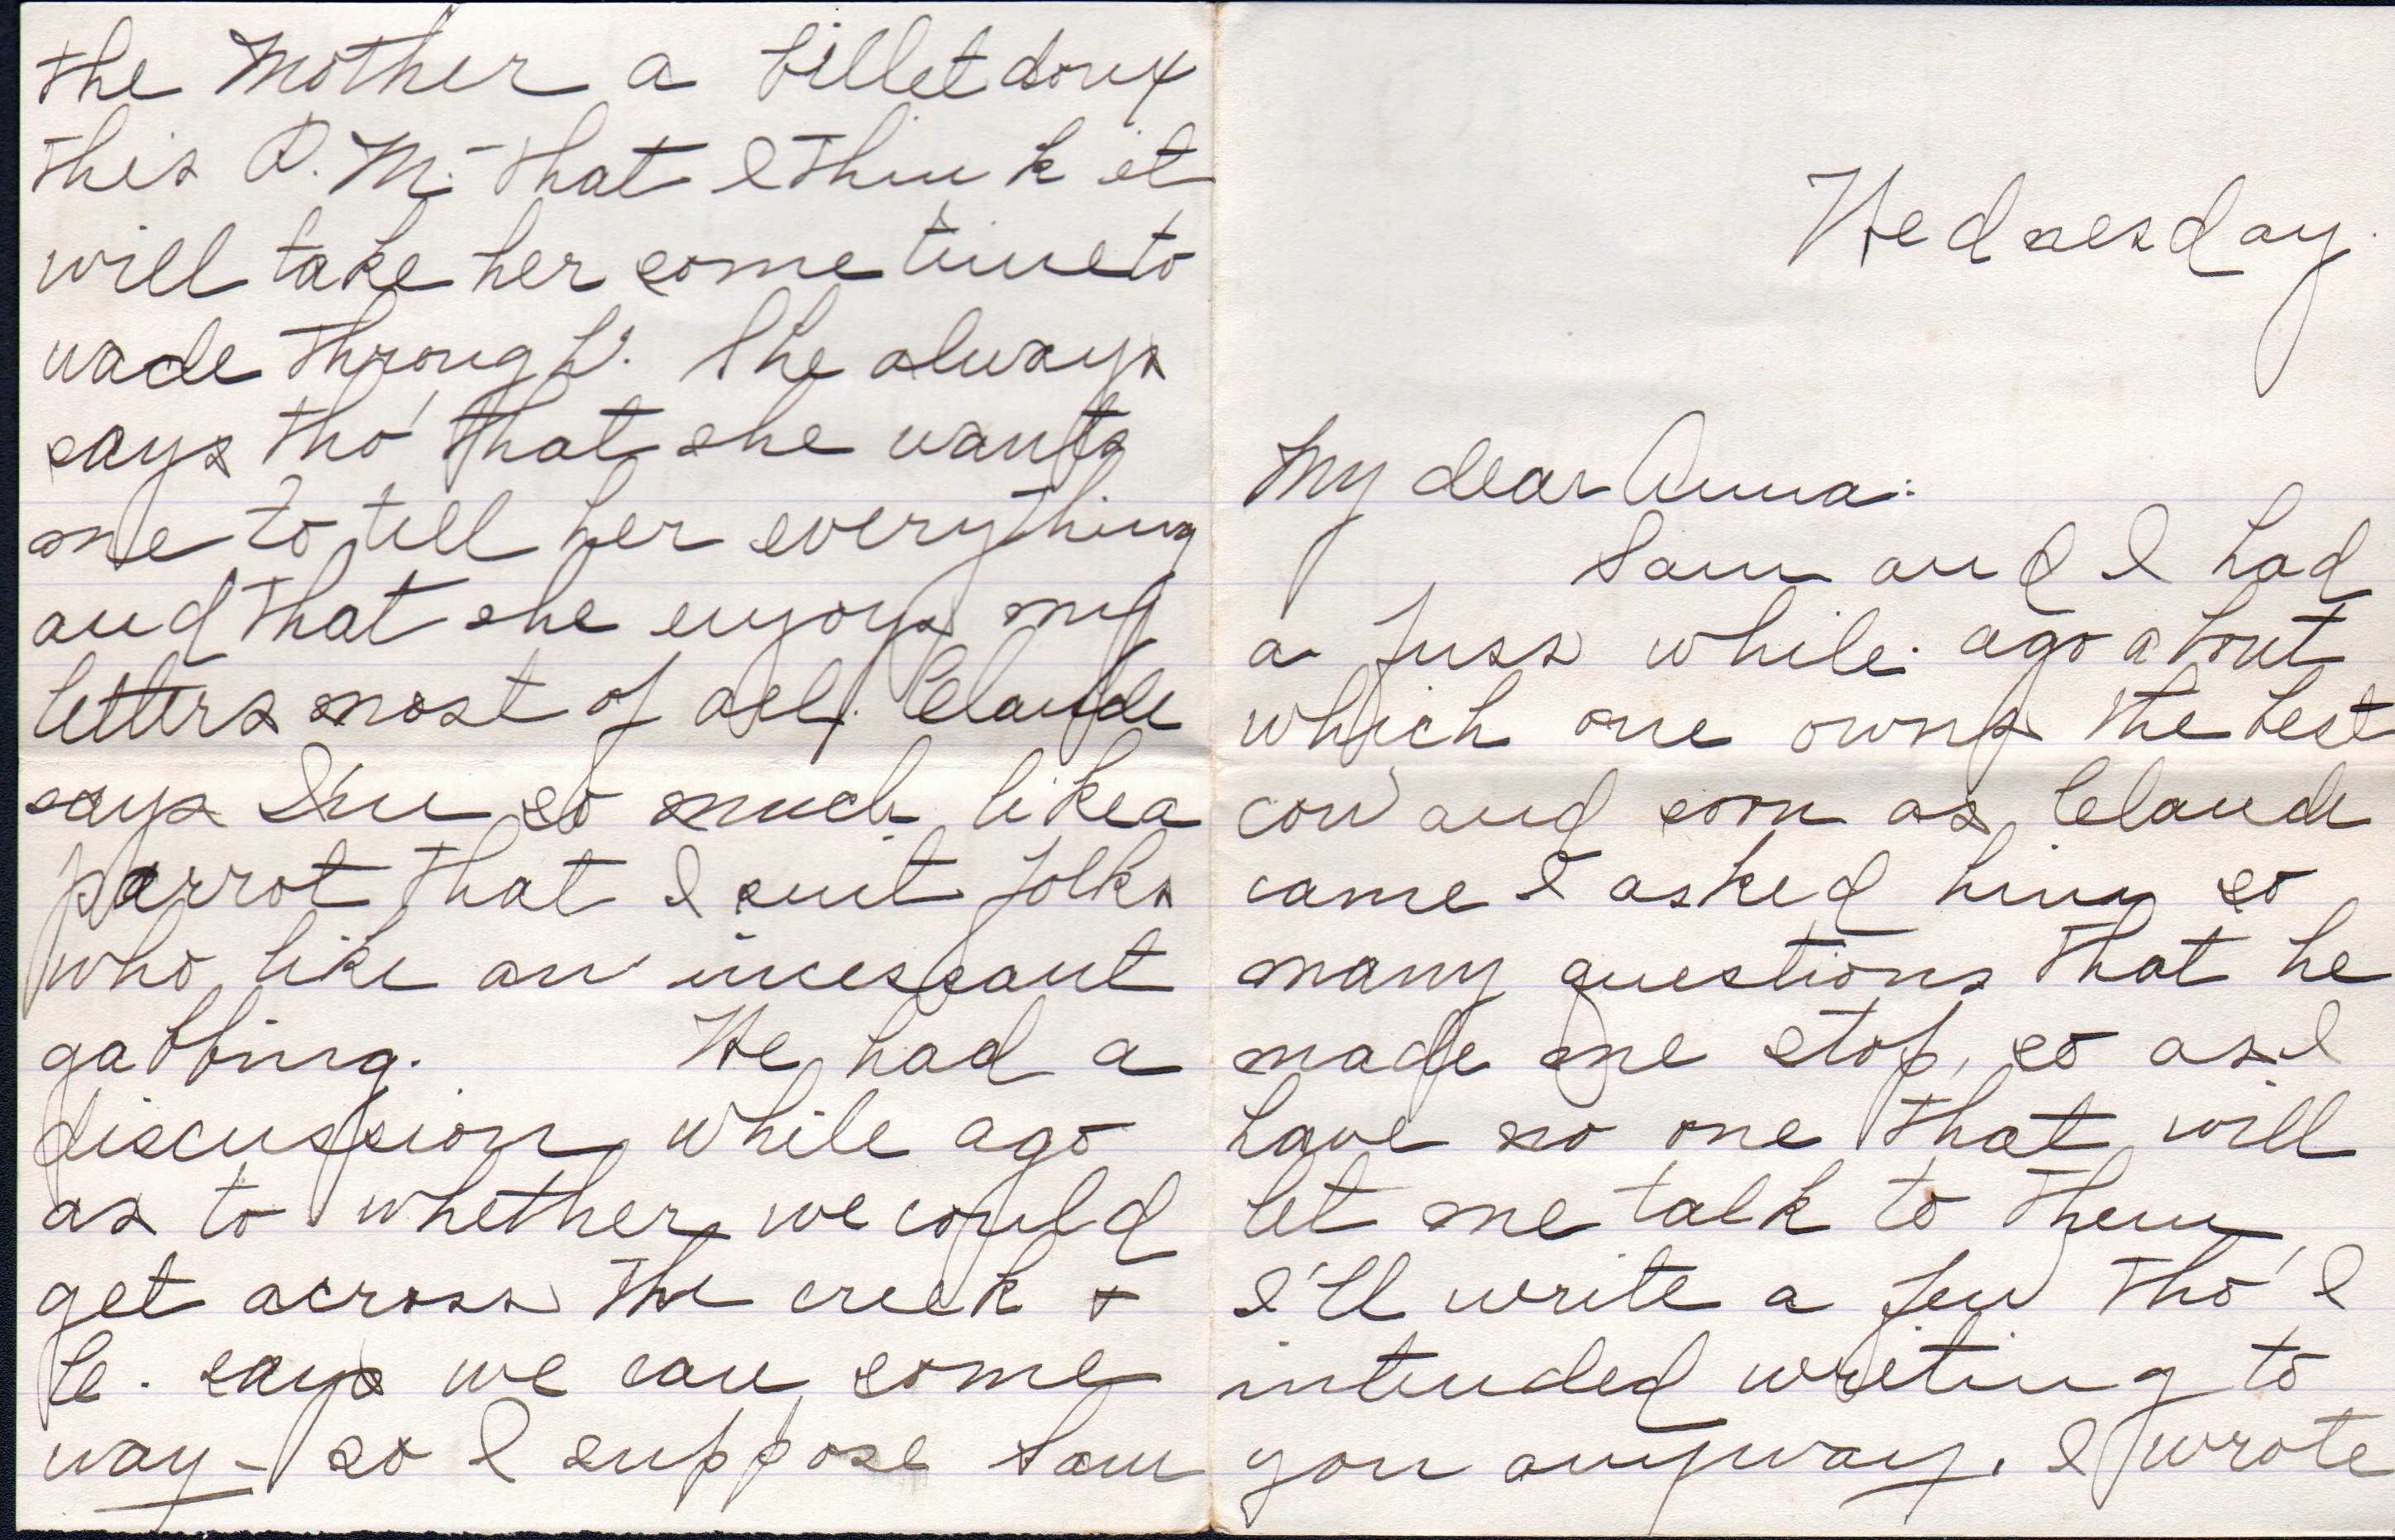 Wednesday.
My dear Anna:
Sam and I had
a fuss while ago about
which one owns the best
cow and soon as Claude
came I asked him so
many questions that he
made me stop, so as I
have no one that will
let me talk to them
I'll write a few tho' I
intended writing to
you anyway. I wrote
the Mother a billetdoux
this P.M. that I think it
will take her some time to
wade through. She always
says tho' that she wants
me to tell her everything
and that she enjoys my
letters most of all. Claude
says I'm so much like a
parrot that I suit folks
who like an incessant
gabbing. We had a
discussion while ago
as to whether we could
get across the creek &
C. says we can some
way - so I suppose Sam